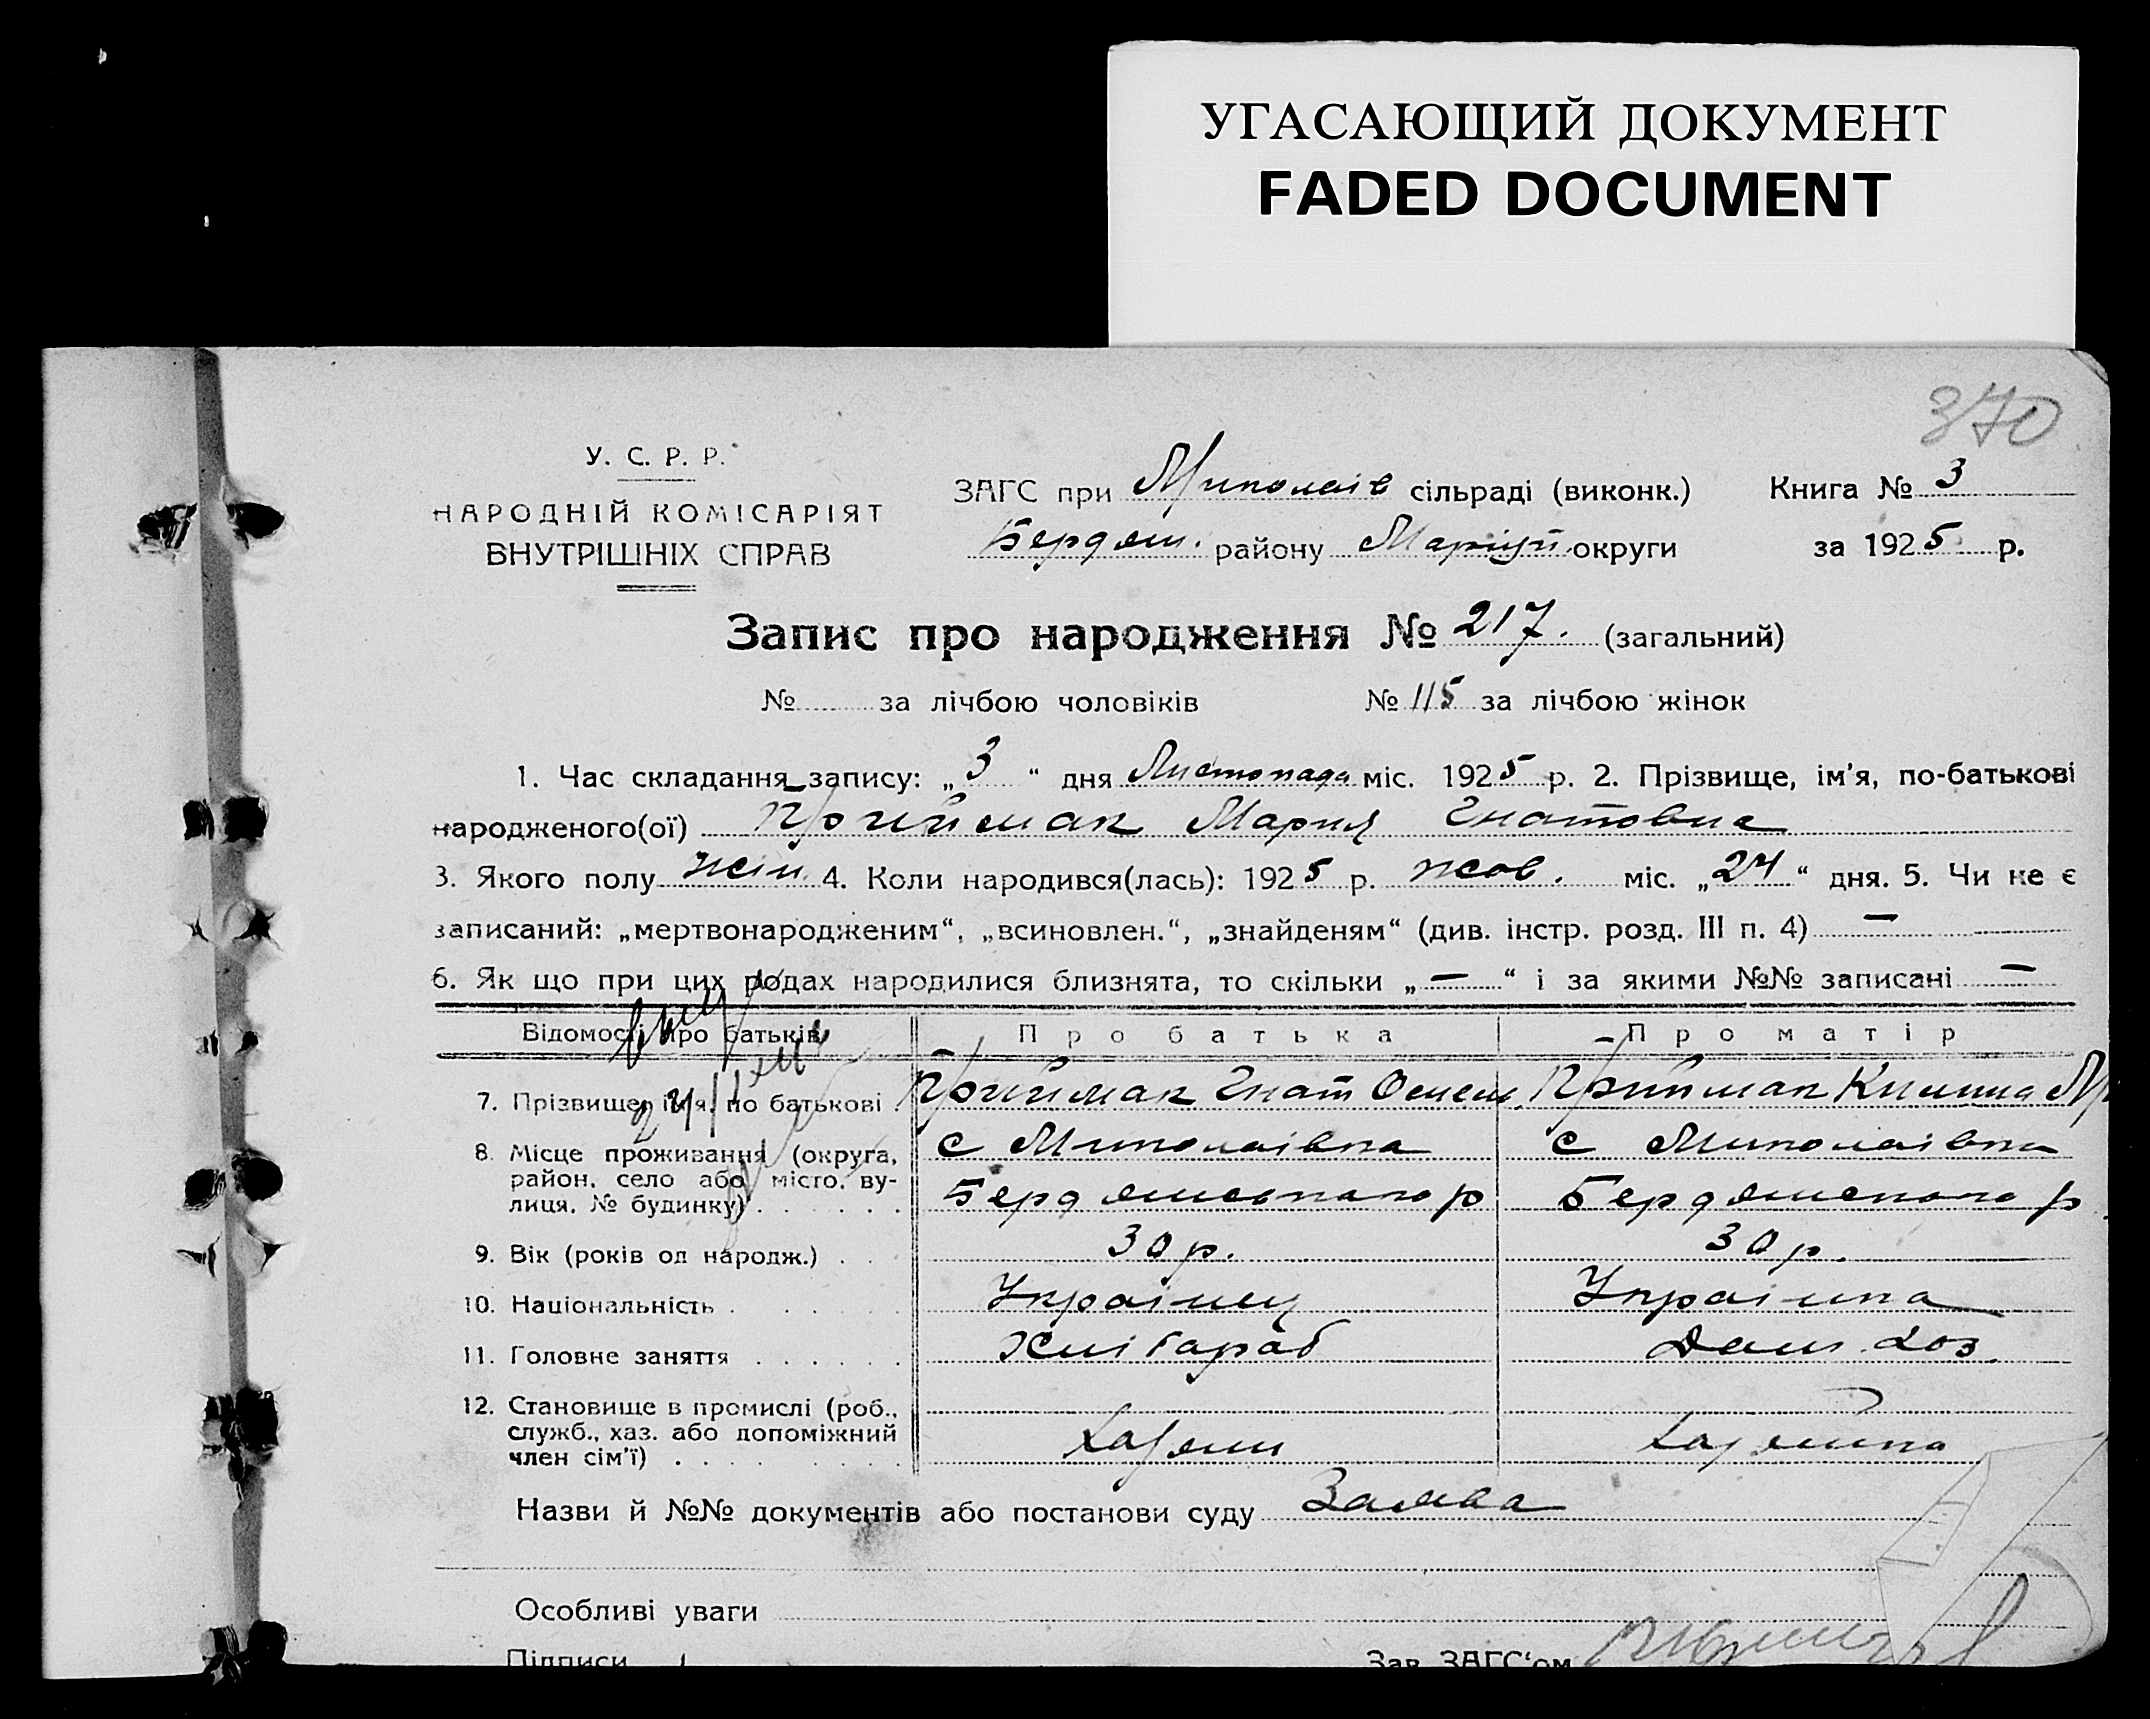 УГАСАЮЩИЙ ДОКУМЕНТ
FADED DOCUMENT
370
У. С. Р. Р.
НАРОДНІЙ КОМІСАРІЯТ
ВНУТРІШНІХ СПРАВ
ЗАГС при Миколаїв сільраді (виконк.) Книга № 3
Бердян. району Маріуп. округи за 1925 р.
Запис про народження № 217. (загальний)
№ за лічбою чоловіків № 115 за лічбою жінок
1. Час складання запису: „3“ дня Листопада міс. 1925 р. 2. Прізвище, ім'я, по-батькові
народженого(ої) Приймак Мария Гнатовна
3. Якого полу жін. 4. Коли народився(лась): 1925 р. жов. міс. „24“ дня. 5. Чи не є
записаний: „мертвонародженим“, „всиновлен.“, „знайденям“ (див. інстр. розд. III п. 4) —
6. Як що при цих родах народилися близнята, то скільки „—“ і за якими №№ записані —
Відомості про батьків Про батька Про матір
7. Прізвище, ім'я, по батькові . Приймак Гнат Приймак
8. Місце проживання (округа, с Миколаівка с Миколаівка
район, село або місто, ву-
лиця, № будинку) . . . . . . Бердянського р Бердянского р
9. Вік (років од народж.) . . 30 р. 30 р.
10. Національність . . . . . Украінец Украінка
11. Головне заняття . . . . . . Хлібороб Дом. хоз.
12. Становище в промислі (роб.,
служб., хаз. або допоміжний
член сім'ї) . . . . . . . . Хазяин Хазяйка
Назви й №№ документів або постанови суду Заява
Особливі уваги
Підписи Зав. ЗАГС'ом